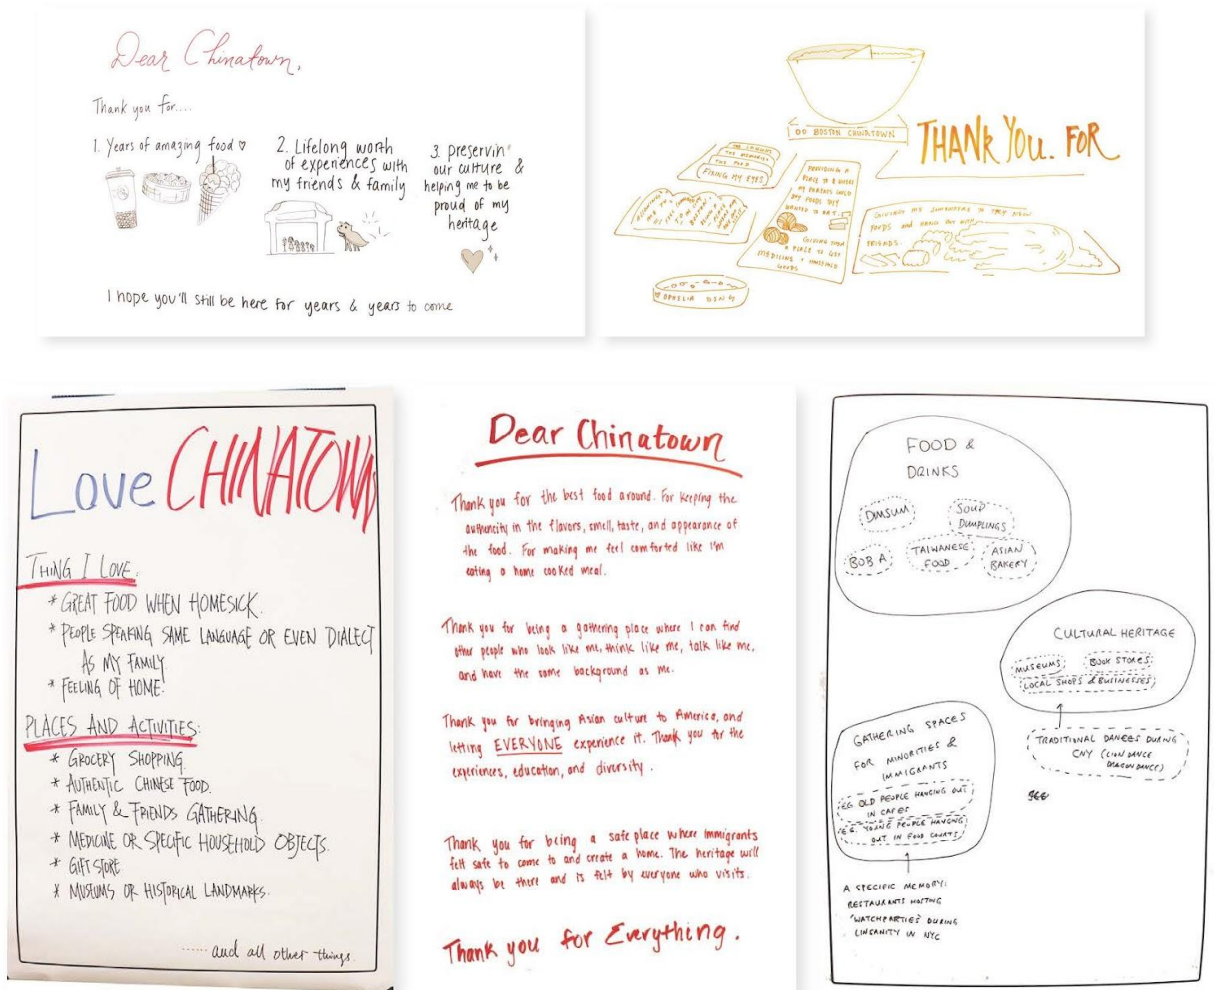 Dear Chinatown,
Thank you for....
1. Years of amazing food
2. Lifelong worth
of experiences with
my friends & family
3. preservin'
our culture &
helping me to be
proud of my
heritage
I hope you'll still be here for years & years to come
BOSTON CHINATOWN
THANK YOU. FOR
THE MEMORIES
THE FOOD
FIXING MY EYES
PROVIDING A
PLACE
MY PARENTS COULD
BUY FOODS THEY
WANTED TO EAT.
GIVING THEM
A PLACE TO GET
MEDICINE & HOUSEHOLD
GOODS
GIVING ME SOMEWHERE TO TRY NEW
FOODS and HANG OUT WITH
FRIENDS.
OPHELIA DING
Love CHINATOWN
THING I LOVE.
* GREAT FOOD WHEN HOMESICK.
* PEOPLE SPEAKING SAME LANGUAGE OR EVEN DIALECT
AS MY FAMILY
* FEELING OF HOME.
PLACES AND ACTIVITIES:
* GROCERY SHOPPING.
* AUTHENTIC CHINESE FOOD.
* FAMILY & FRIENDS GATHERING.
* MEDICINE OR SPECIFIC HOUSEHOLD OBJECTS.
* GIFT STORE
* MUSEUMS OR HISTORICAL LANDMARKS.
...... and all other things.
Dear Chinatown
Thank you for the best food around. For keeping the
authencity in the flavors, smell, taste, and appearance of
the food. For making me feel comforted like I'm
eating a home cooked meal.
Thank you for being a gathering place where I can find
other people who look like me, think like me, talk like me,
and have the same background as me.
Thank you for bringing Asian culture to America, and
letting EVERYONE experience it. Thank you for the
experiences, education, and diversity.
Thank you for being a safe place where immigrants
felt safe to come to and create a home. The heritage will
always be there and is felt by everyone who visits.
Thank you for Everything.
FOOD &
DRINKS
DIMSUM
SOUP
DUMPLINGS
BOBA
TAIWANESE
FOOD
ASIAN
BAKERY
CULTURAL HERITAGE
MUSEUMS
BOOK STORES
LOCAL SHOPS & BUSINESSES
TRADITIONAL DANCES DURING
CNY (LION DANCE
DRAGON DANCE)
GATHERING SPACES
FOR MINORITIES &
IMMIGRANTS
EG OLD PEOPLE HANGING OUT
IN CAFES
E.G. YOUNG PEOPLE HANGING
OUT IN FOOD COURTS
A SPECIFIC MEMORY:
RESTAURANTS HOSTING
'WATCHPARTIES' DURING
LINSANITY IN NYC